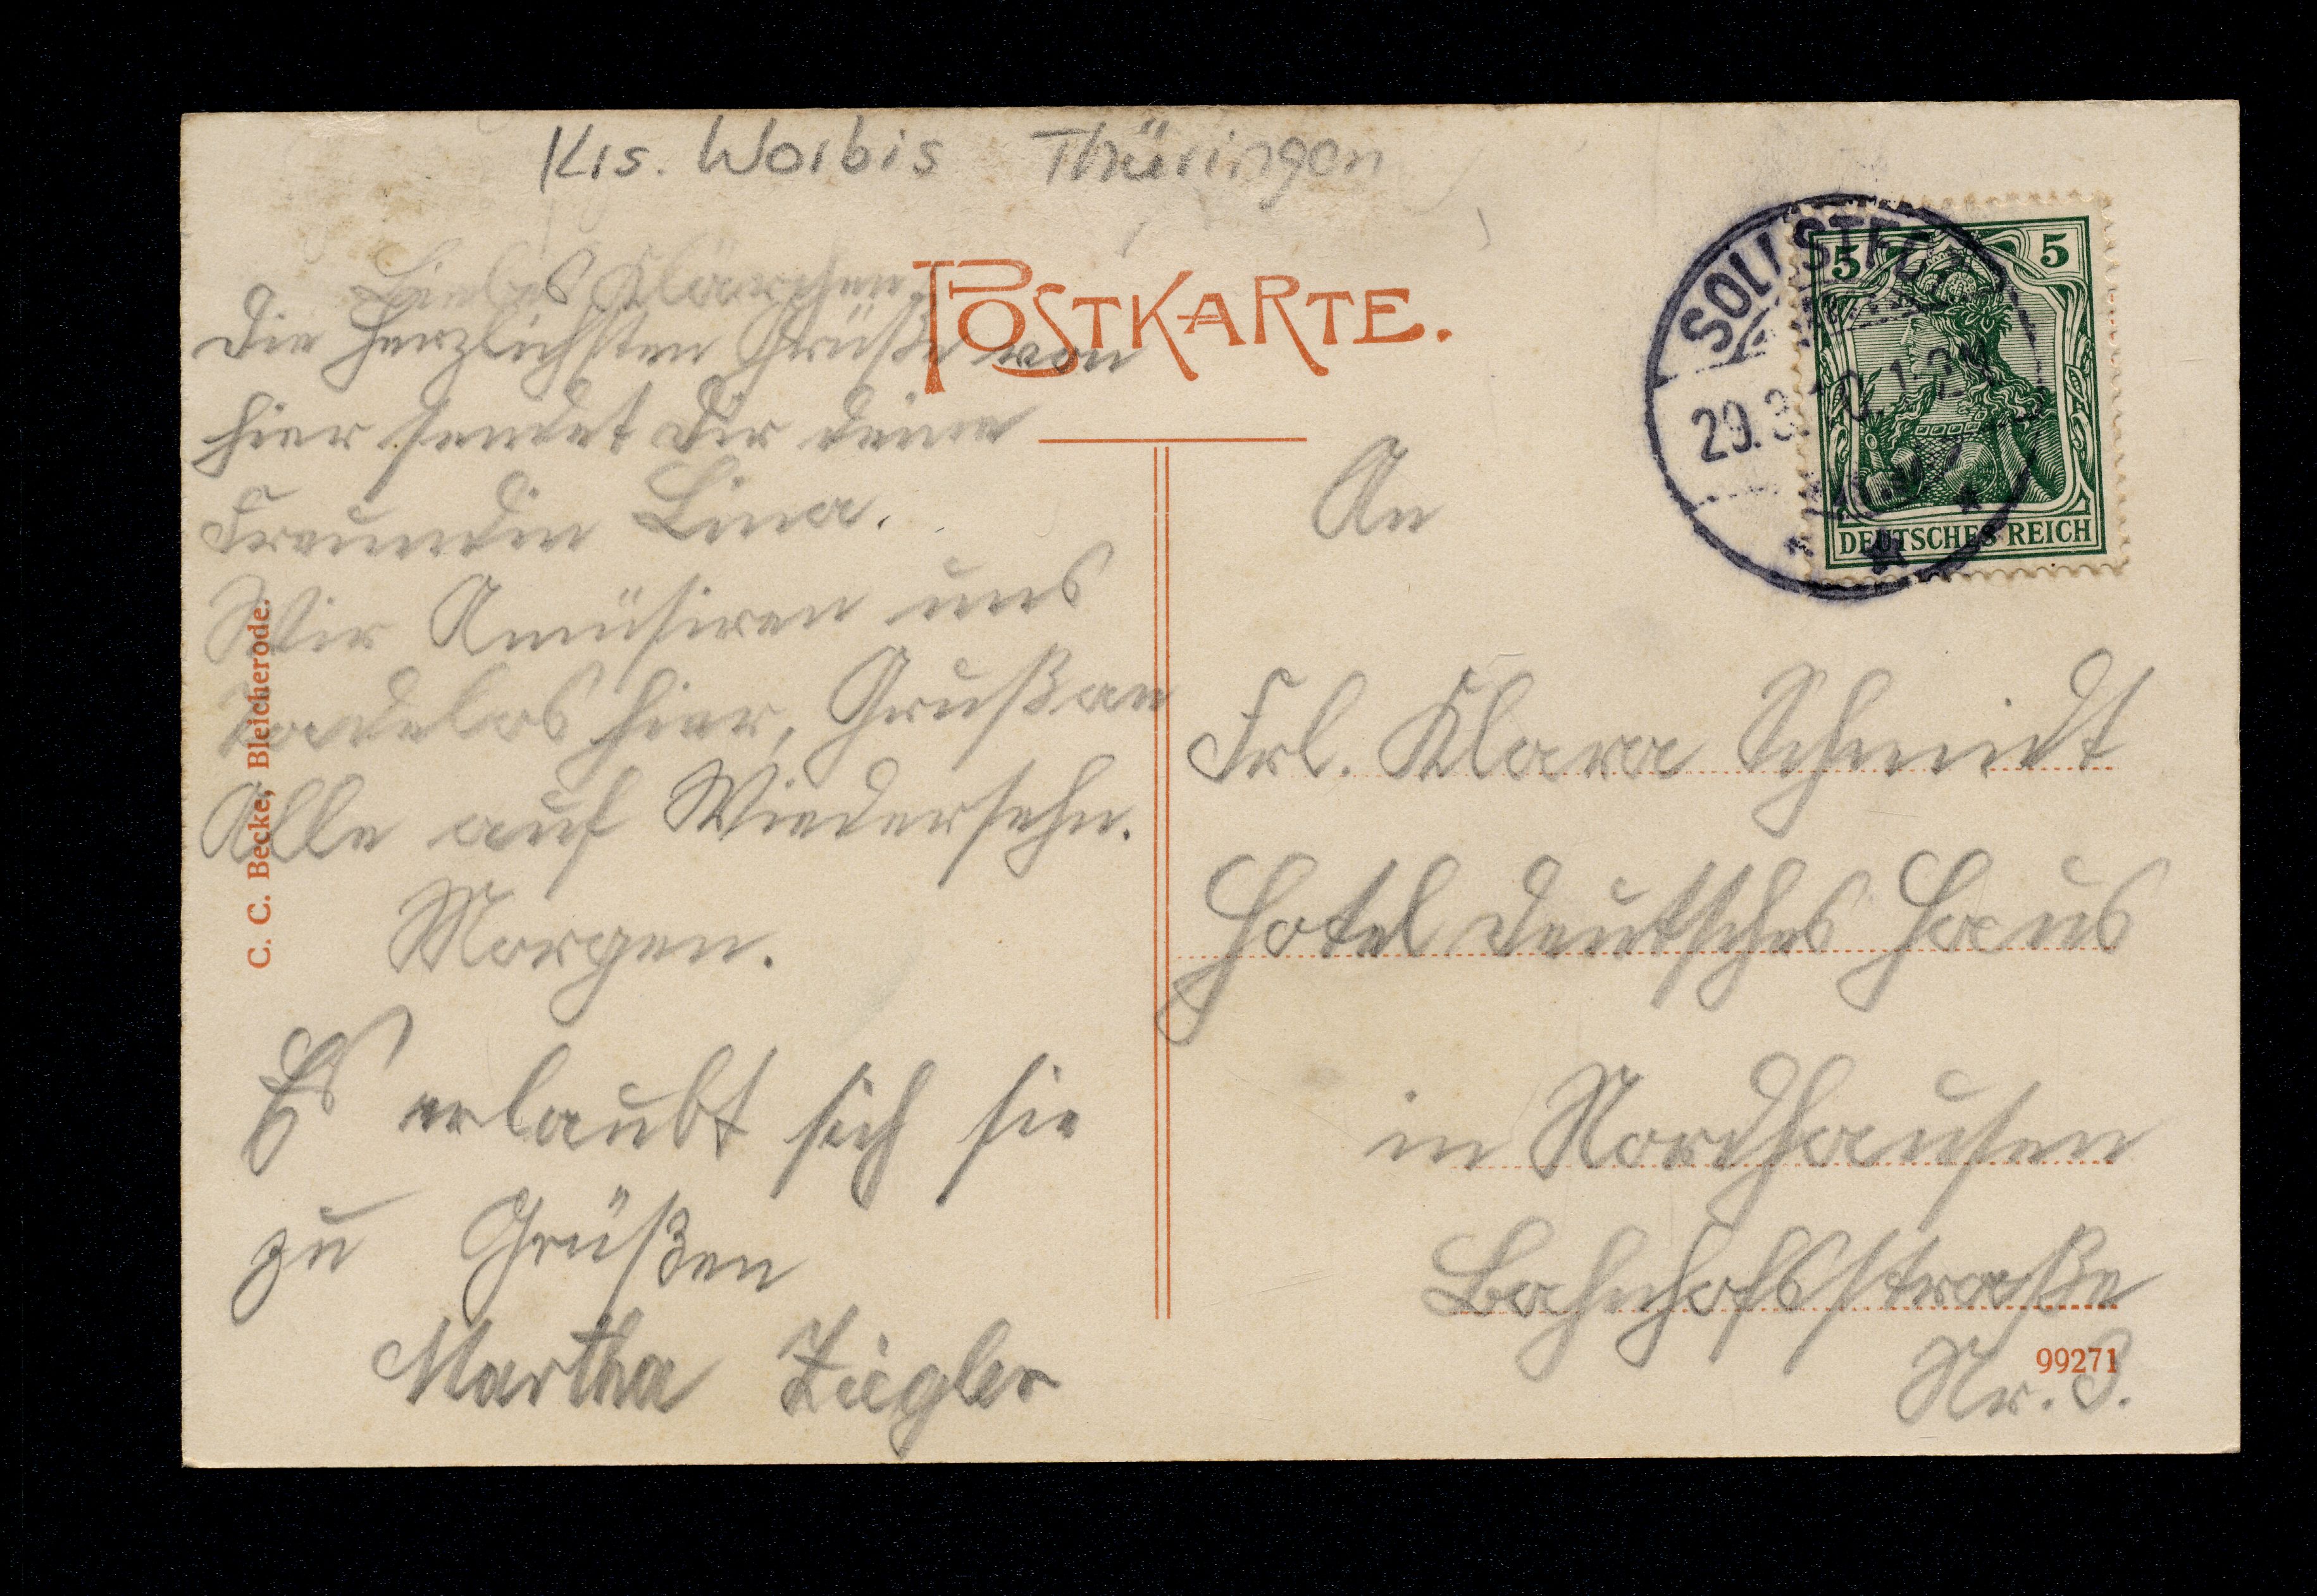 Krs. Worbis Thüringen
POSTKARTE.
Liebes Klärchen.
Die herzlichsten Grüße von
hier sendet Dir deine
Freundin Lina.
Wir Amüsiren uns
Tadelos hier, Gruß an
Alle auf Wiedersehn.
Morgen.
Es erlaubt sich sie
zu Grüßen
Martha Ziegler
C. C. Becke, Bleicherode.
SOLLSTEDT
29.3.10. 1-2N
5 5
DEUTSCHES REICH
An
Frl. Klara Schmidt
Hotel Deutsches Haus
in Nordhausen
Bahnhofsstraße
Nr.
99271